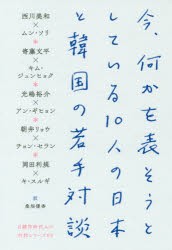 今、何かを表そうと
している10人の日本
と韓国の若手対談
西川美和
×
ムン・ソリ
*
寄藤文平
×
キム・
ジュンヒョク
*
光嶋裕介
×
アン・ギヒョン
*
朝井リョウ
×
チョン・セラン
*
岡田利規
×
キ・スルギ
訳
桑畑優香